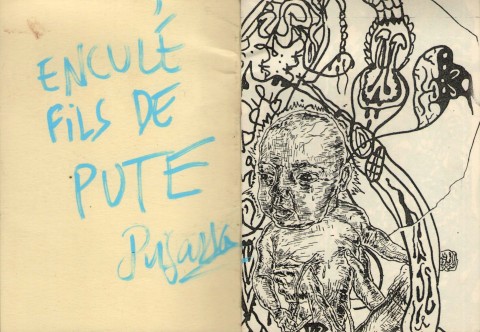 ENCULÉ
FILS DE
PUTE